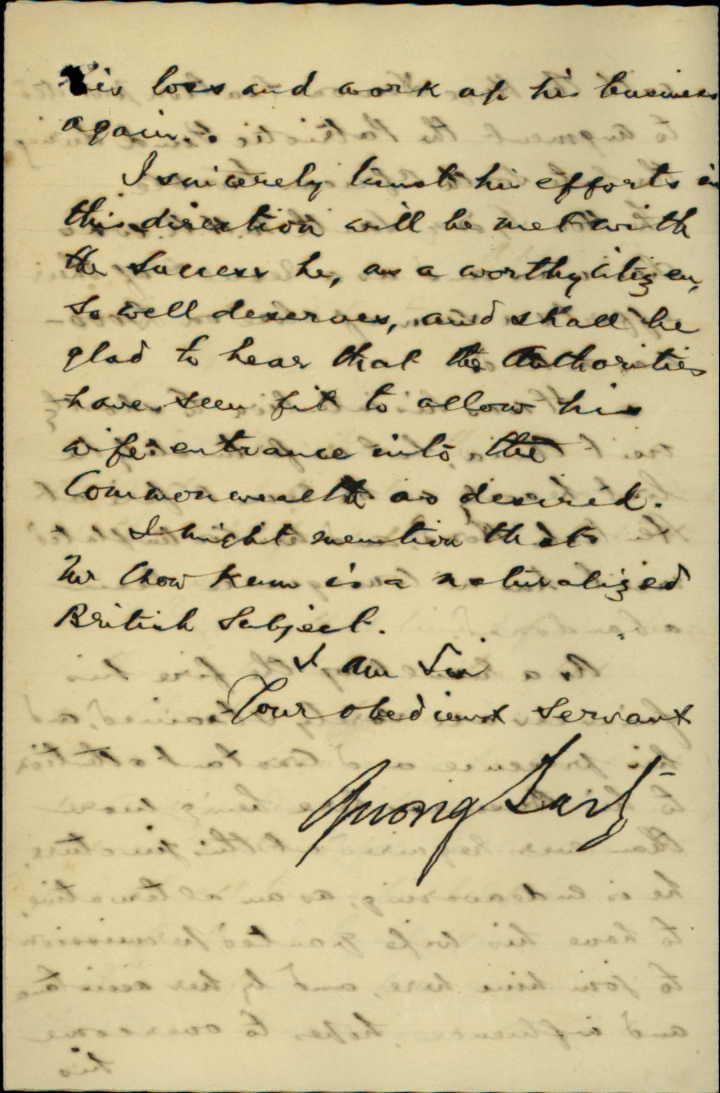 his loss and work up his business
again.
I sincerely trust his efforts in
this direction will be met with
the success he, as a worthy citizen,
so well deserves, and shall be
glad to hear that the Authorities
have seen fit to allow his
wife entrance into the
Commonwealth as desired.
I might mention that
Mr Chow Kum is a naturalized
British Subject.
I am Sir
Your obedient Servant
Quong Tart